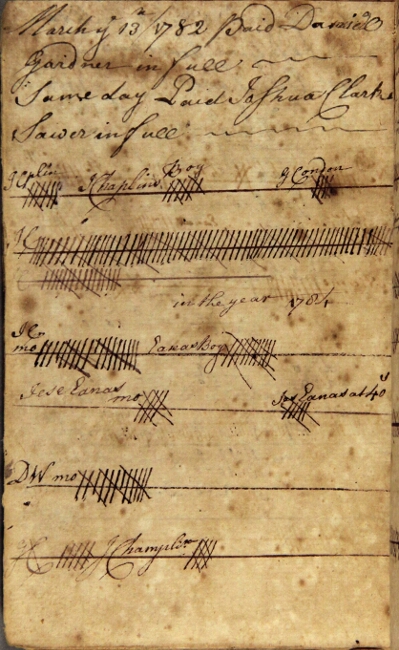 March ye 13th 1782 Paid Daniel
Gardner in full
Same day Paid Joshua Clark
Sawer in full
J Chaplins Boy G Condon
H
in the year 1784
mo Eanas Boy
Jese Eanas mo Jes Eanas at 40s
DW mo
H J Champlin